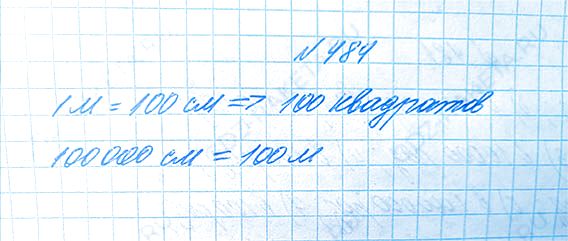 № 484
1 м = 100 см => 100 квадратов
100 000 см = 100 м